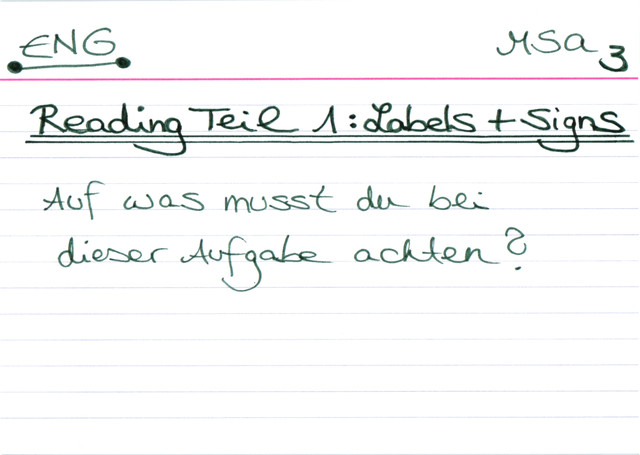 ENG
MSa 3
Reading Teil 1: Labels + Signs
Auf was musst du bei
dieser Aufgabe achten?